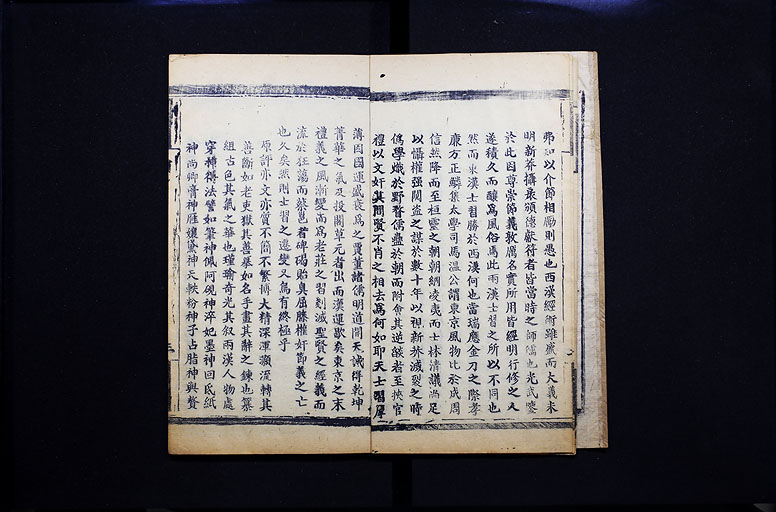 弗如以介節相勵則愚也西漢經術雖盛而大義未
明新莽攝衰頌德獻符者皆當時之師儒也光武鑒
於此因尊崇節義敦厲名實所用皆經明行修之人
遂積久而釀爲風俗焉此兩漢士習之所以不同也
然而東漢士習勝於西漢何也當璫應金刀之際孝
康方正麟集太學司馬溫公謂東京風物比於成周
信然降而至桓靈之朝朝綱凌夷而士林清議尚足
以懾權强閹盜之謀於數十年以視新莽滅裂之時
僞學熾於野瞀儒蠱於朝而附會其逆燄者至挾官
禮以文奸其間賢不肖之相去爲何如耶天士習犀
薄因國運盛衰爲之賈董諸儒明道閑天誠得乾坤
菁華之氣及投閣草元者出而漢運歇矣東京之末
禮義之風漸變而爲老莊之習剗滅聖賢之經義而
流於狂蕩而蔡邕者碑碣貽臭屈膝權奸節義之亡
也久矣然則士習之遷變又烏有終極乎
原評亦文亦質不簡不繁博大精深渾灝流轉其
善斷如老吏獄其善舉如名手畫其辭之鍊也纂
組古色其氣之華也瑾瑜奇光其叙兩漢人物處
穿挿得法譬如筆神佩阿硯神淬妃墨神回氐紙
神尚卿膏神雁孃黛神天軼粉神子占脂神與贅